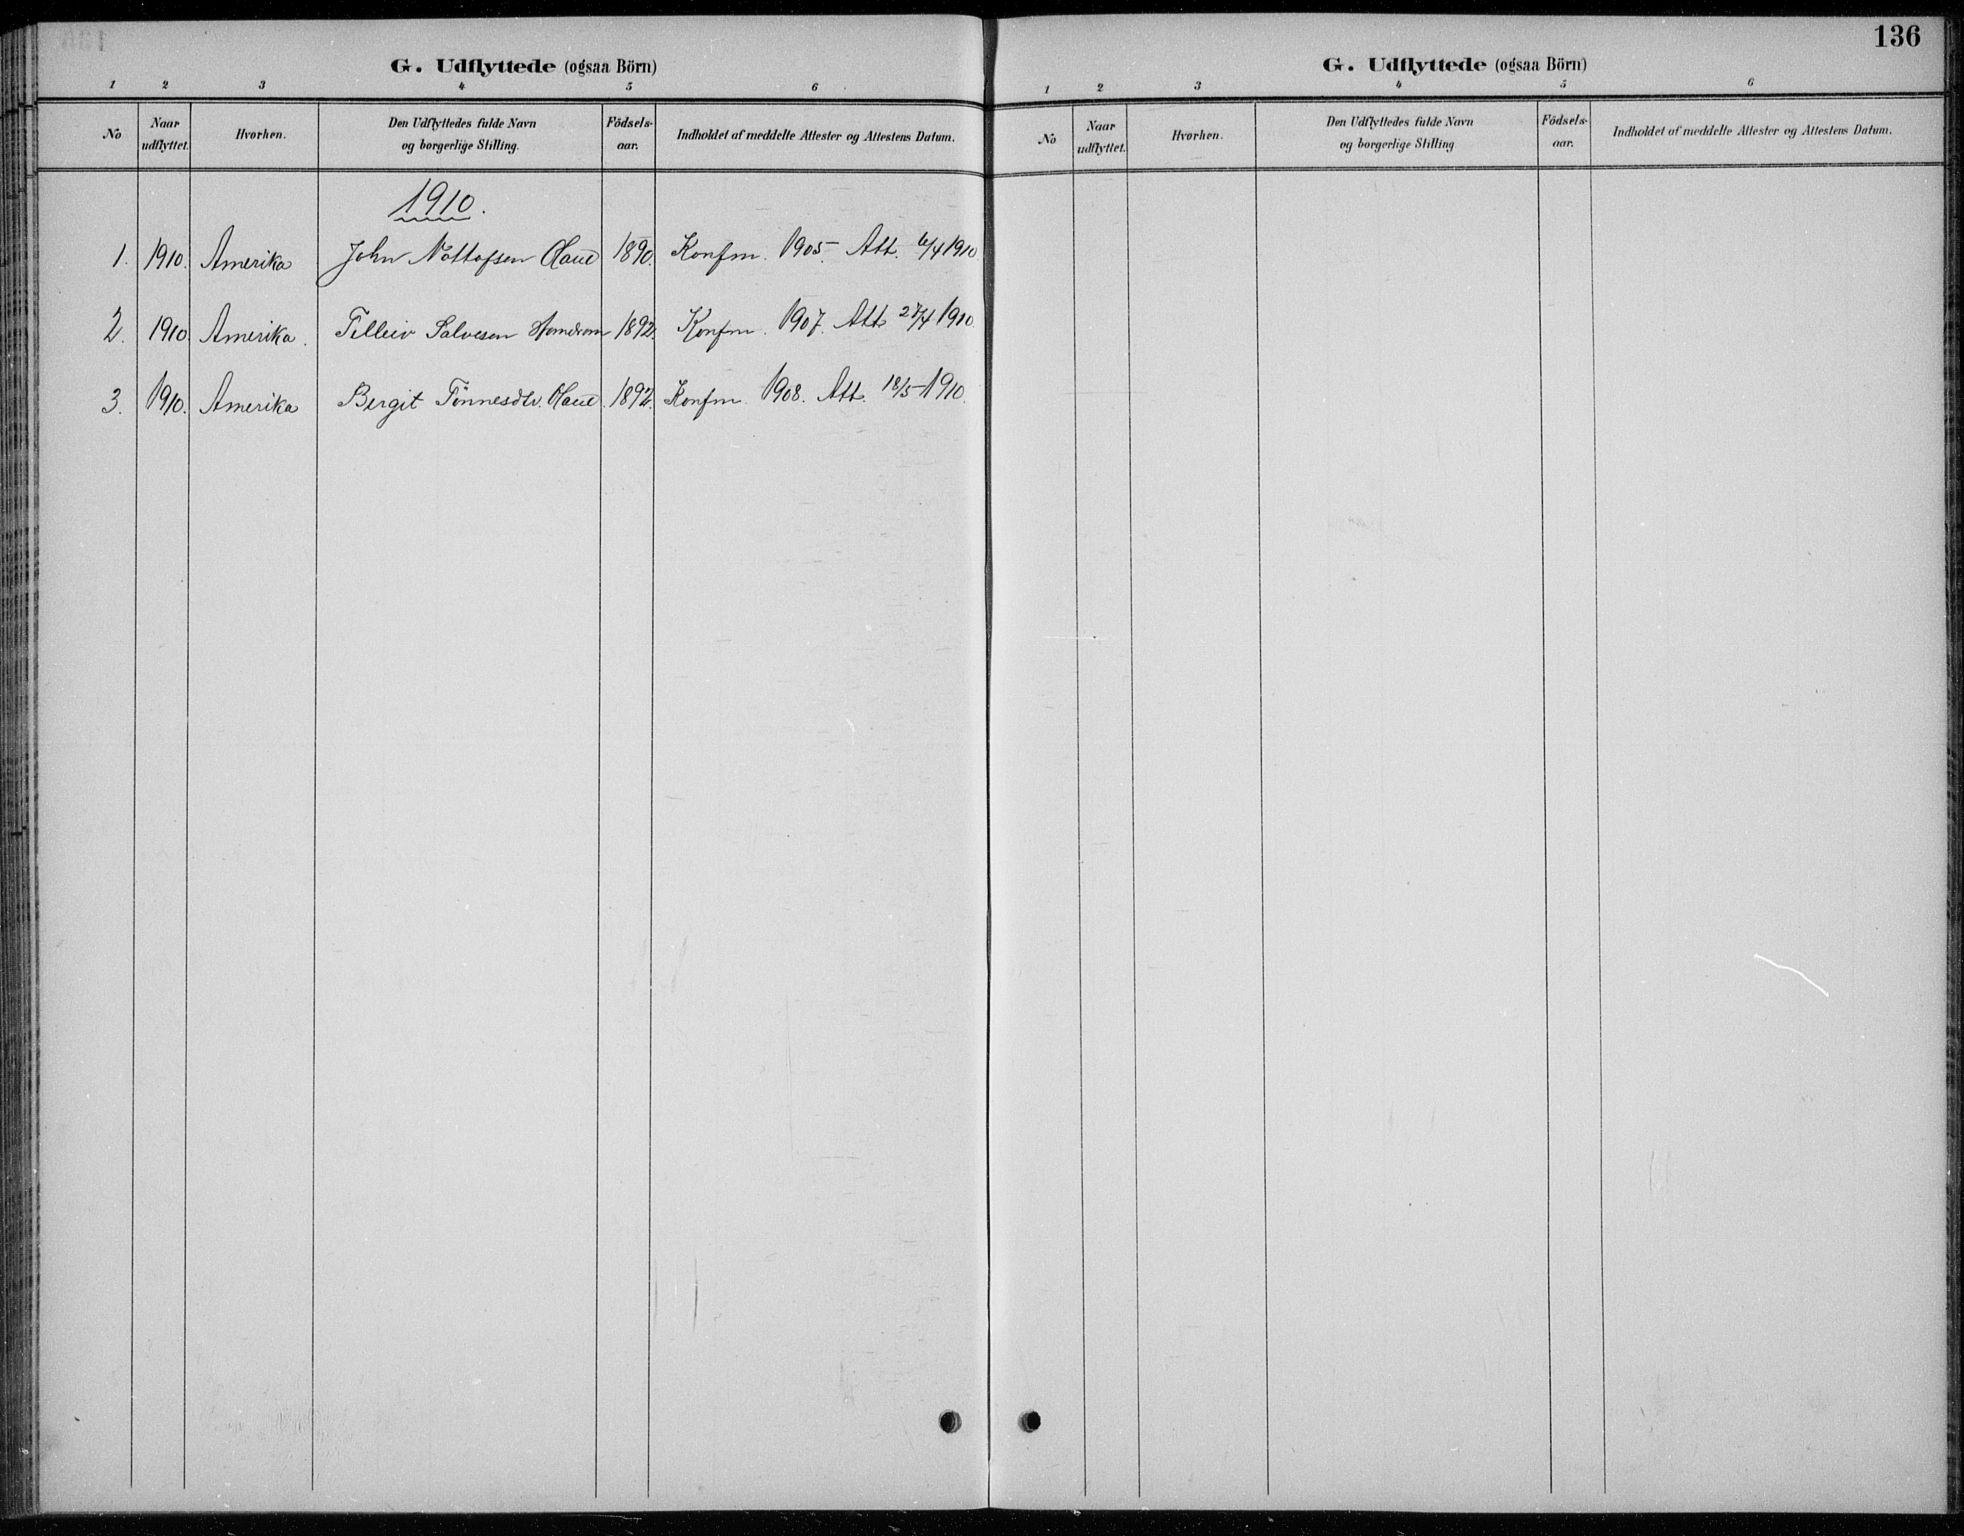 G. Udflyttede (ogsaa Börn)
1 2 3 4 5 6
No Naar udflyttet. Hvorhen. Den Udflyttedes fulde Navn og borgerlige Stilling. Födsels-aar. Indholdet af meddelte Attester og Attestens Datum.
1910.
1. 1910. Amerika John Nottofsen 1890. Konfm. 1905. Att. 6/4 1910.
2. 1910. Amerika. Tilleiv Salvesen Homdrom 1892. Konfm. 1907. Att. 1910.
3. 1910. Amerika Bergit Tönnesdtr. 1892. Konfm. 1908. Att. 18/5 1910.
136
G. Udflyttede (ogsaa Börn)
1 2 3 4 5 6
No Naar udflyttet. Hvorhen. Den Udflyttedes fulde Navn og borgerlige Stilling Födsels-aar. Indholdet af meddelte Attester og Attestens Datum.